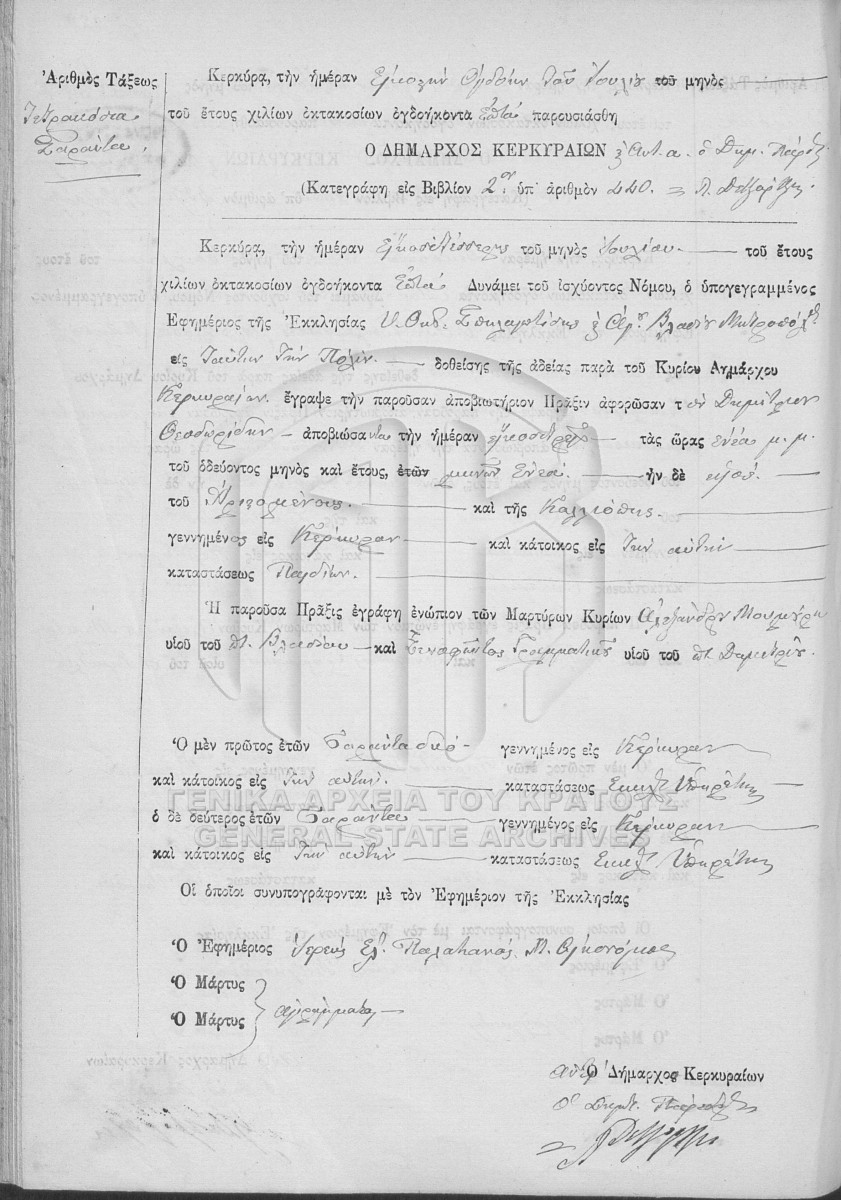 Ἀριθμὸς Τάξεως
Τετρακόσια
Σαράντα.
Κερκύρᾳ, τὴν ἡμέραν Εἰκοστὴν Ὀγδόην τοῦ Ἰουλίου τοῦ μηνὸς
τοῦ ἔτους χιλίων ὀκτακοσίων ὀγδοήκοντα Ἑπτὰ παρουσιάσθη
Ὁ ΔΗΜΑΡΧΟΣ ΚΕΡΚΥΡΑΙΩΝ ὁ Δημ. Πάρεδρ.
(Κατεγράφη εἰς Βιβλίον 2ον ὑπ' ἀριθμὸν 440.
Κερκύρᾳ, τὴν ἡμέραν εἰκοσιτέσσερες τοῦ μηνὸς Ἰουλίου τοῦ ἔτους
χιλίων ὀκτακοσίων ὀγδοήκοντα Ἑπτὰ Δυνάμει τοῦ ἰσχύοντος Νόμου, ὁ ὑπογεγραμμένος
Ἐφημέριος τῆς Ἐκκλησίας Υ. Θκ. Σπηλαιωτίσσης Βλασίου Μητροπόλ.
εἰς Ταύτην τὴν Πόλιν. δοθείσης τῆς ἀδείας παρὰ τοῦ Κυρίου Δημάρχου
Κερκυραίων. ἔγραψε τὴν παροῦσαν ἀποβιωτήριον Πρᾶξιν ἀφορῶσαν τὸν Δημήτριον
Θεοδωρίδην ἀποβιώσαντα τὴν ἡμέραν εἰκοσιτρεῖς τὰς ὥρας ἐννέα μ.μ.
τοῦ ὁδεύοντος μηνὸς καὶ ἔτους, ἐτῶν μηνῶν ἐννέα. ἦν δὲ υἱὸς
τοῦ Ἀριστομένους. καὶ τῆς Καλλιόπης.
γεννημένος εἰς Κέρκυραν καὶ κάτοικος εἰς τὴν αὐτὴν
καταστάσεως Παιδίον.
Ἡ παροῦσα Πρᾶξις ἐγράφη ἐνώπιον τῶν Μαρτύρων Κυρίων Ἀλεξάνδρου Μουμούρη
υἱοῦ τοῦ πτ. Βλασίου καὶ Ξενοφῶντος Γραμματικοῦ υἱοῦ τοῦ πτ. Δημητρίου.
Ὁ μὲν πρῶτος ἐτῶν Σαράντα δύο γεννημένος εἰς Κέρκυραν
καὶ κάτοικος εἰς τὴν αὐτὴν. καταστάσεως Ἐκκλ. Ὑπηρέτης
ὁ δὲ δεύτερος ἐτῶν Σαράντα γεννημένος εἰς Κέρκυραν
καὶ κάτοικος εἰς τὴν αὐτὴν καταστάσεως Ἐκκλ. Ὑπηρέτης
Οἱ ὁποῖοι συνυπογράφονται μὲ τὸν Ἐφημέριον τῆς Ἐκκλησίας
Ὁ Ἐφημέριος Ἱερεὺς Παλατιανός. Μ. Οἰκονόμος
Ὁ Μάρτυς
Ὁ Μάρτυς ἀγράμματοι
Ὁ Δήμαρχος Κερκυραίων
Ὁ Δημ. Πάρεδρος
ΓΕΝΙΚΑ ΑΡΧΕΙΑ ΤΟΥ ΚΡΑΤΟΥΣ
GENERAL STATE ARCHIVES